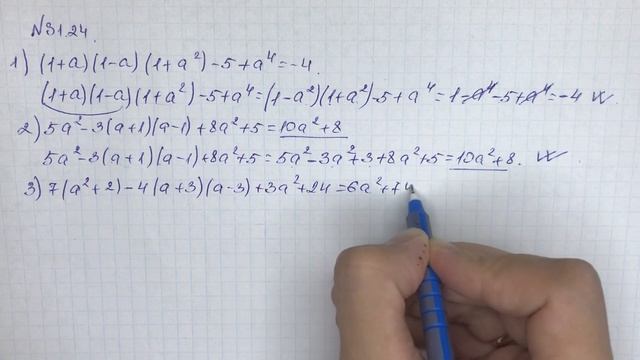 N31.24.
1) (1+a)(1-a)(1+a²)-5+a⁴=-4.
(1+a)(1-a)(1+a²)-5+a⁴=(1-a²)(1+a²)-5+a⁴=1-a⁴-5+a⁴=-4
2) 5a²-3(a+1)(a-1)+8a²+5=10a²+8
5a²-3(a+1)(a-1)+8a²+5=5a²-3a²+3+8a²+5=10a²+8.
3) 7(a²+2)-4(a+3)(a-3)+3a²+24=6a²+74